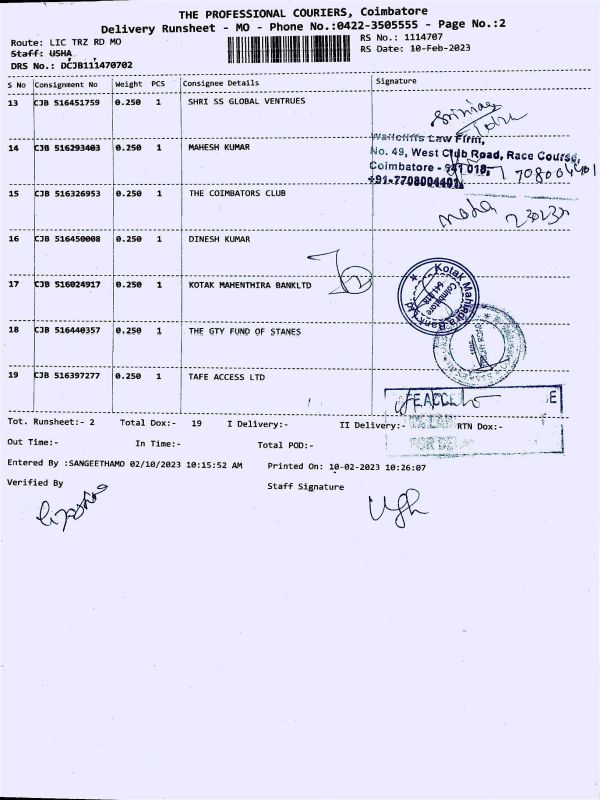 THE PROFESSIONAL COURIERS, Coimbatore
Delivery Runsheet - MO - Phone No.:0422-3505555 - Page No.:2
Route: LIC TRZ RD MO
RS No.: 1114707
Staff: USHA
RS Date: 10-Feb-2023
DRS No.: DCJB111470702
S No Consignment No Weight PCS Consignee Details Signature
13 CJB 516451759 0.250 1 SHRI SS GLOBAL VENTRUES
Wallcliffs Law Firm,
14 CJB 516293403 0.250 1 MAHESH KUMAR
No. 49, West Club Road, Race Course,
Coimbatore - 641 018,
+91-7708004401
7708004401
15 CJB 516326953 0.250 1 THE COIMBATORS CLUB
16 CJB 516450008 0.250 1 DINESH KUMAR
17 CJB 516024917 0.250 1 KOTAK MAHENTHIRA BANKLTD
Kotak Mahindra Bank Ltd
Coimbatore
641 018
18 CJB 516440357 0.250 1 THE GTY FUND OF STANES
19 CJB 516397277 0.250 1 TAFE ACCESS LTD
Tot. Runsheet:- 2 Total Dox:- 19 I Delivery:- II Delivery:- RTN Dox:-
Out Time:- In Time:- Total POD:-
Entered By :SANGEETHAMO 02/10/2023 10:15:52 AM Printed On: 10-02-2023 10:26:07
Verified By Staff Signature